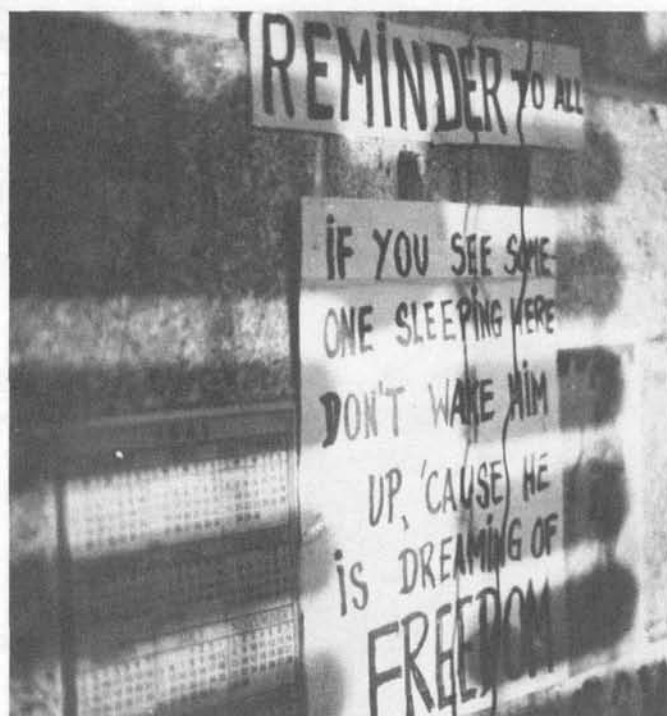 REMINDER TO ALL
IF YOU SEE SOME-
ONE SLEEPING HERE
DON'T WAKE HIM
UP, 'CAUSE HE
IS DREAMING OF
FREEDOM